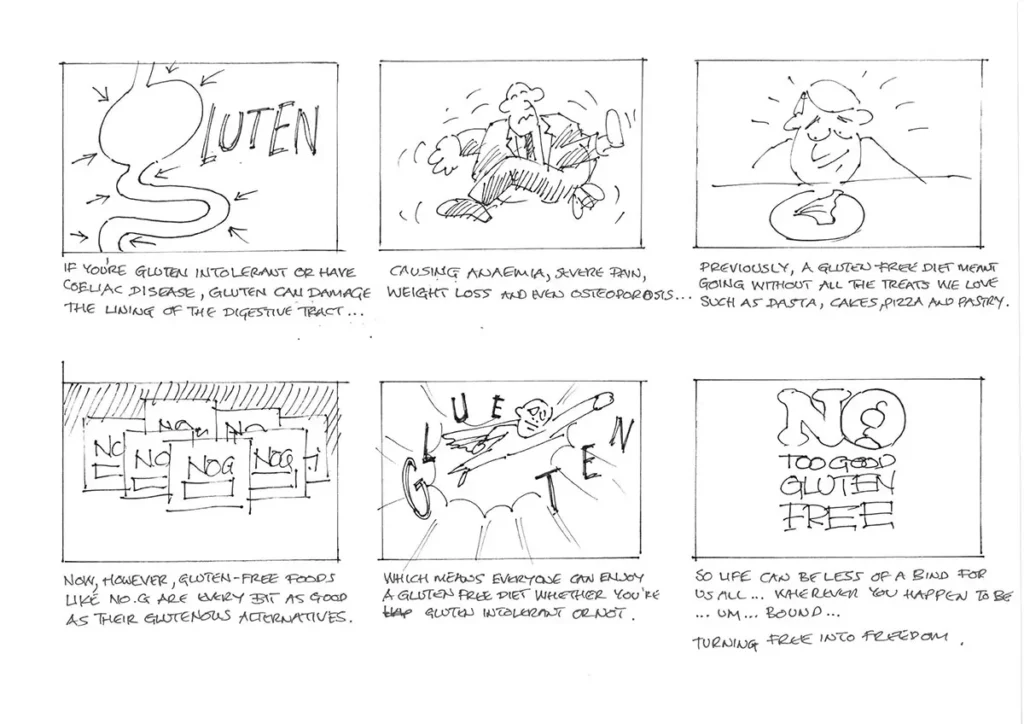 GLUTEN
IF YOU'RE GLUTEN INTOLERANT OR HAVE
COELIAC DISEASE, GLUTEN CAN DAMAGE
THE LINING OF THE DIGESTIVE TRACT...
CAUSING ANAEMIA, SEVERE PAIN,
WEIGHT LOSS AND EVEN OSTEOPOROSIS...
PREVIOUSLY, A GLUTEN-FREE DIET MEANT
GOING WITHOUT ALL THE TREATS WE LOVE
SUCH AS PASTA, CAKES, PIZZA AND PASTRY.
NO NO NO.G NOG NO.G NOG
NOW, HOWEVER, GLUTEN-FREE FOODS
LIKE NO.G ARE EVERY BIT AS GOOD
AS THEIR GLUTENOUS ALTERNATIVES.
G L U E T E N
WHICH MEANS EVERYONE CAN ENJOY
A GLUTEN FREE DIET WHETHER YOU'RE
GLUTEN INTOLERANT OR NOT.
NO
G
TOO GOOD
GLUTEN
FREE
SO LIFE CAN BE LESS OF A BIND FOR
US ALL... WHEREVER YOU HAPPEN TO BE
... UM... BOUND...
TURNING FREE INTO FREEDOM.